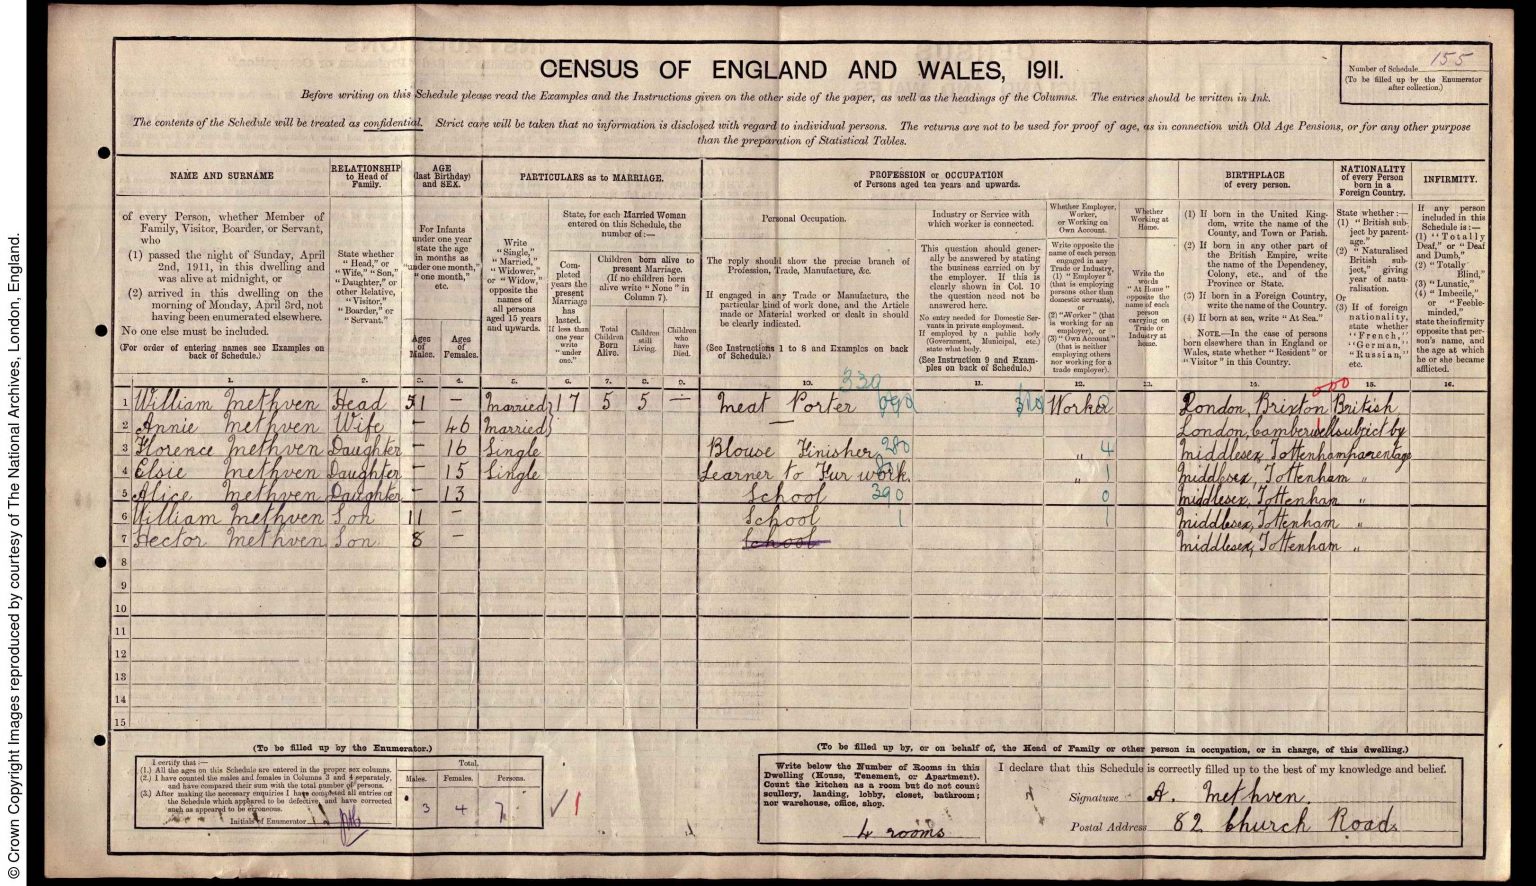 © Crown Copyright Images reproduced by courtesy of The National Archives, London, England.
CENSUS OF ENGLAND AND WALES, 1911.
Number of Schedule 155
(To be filled up by the Enumerator after collection.)
Before writing on this Schedule please read the Examples and the Instructions given on the other side of the paper, as well as the headings of the Columns. The entries should be written in Ink.
The contents of the Schedule will be treated as confidential. Strict care will be taken that no information is disclosed with regard to individual persons. The returns are not to be used for proof of age, as in connection with Old Age Pensions, or for any other purpose
than the preparation of Statistical Tables.
NAME AND SURNAME
RELATIONSHIP to Head of Family.
AGE (last Birthday) and SEX.
PARTICULARS as to MARRIAGE.
PROFESSION or OCCUPATION
of Persons aged ten years and upwards.
BIRTHPLACE
of every person.
NATIONALITY
of every Person born in a Foreign Country.
INFIRMITY.
of every Person, whether Member of
Family, Visitor, Boarder, or Servant,
who
(1) passed the night of Sunday, April
2nd, 1911, in this dwelling and
was alive at midnight, or
(2) arrived in this dwelling on the
morning of Monday, April 3rd, not
having been enumerated elsewhere.
No one else must be included.
(For order of entering names see Examples on
back of Schedule.)
State whether
"Head," or
"Wife," "Son,"
"Daughter," or
other Relative,
"Visitor,"
"Boarder," or
"Servant."
For Infants
under one year
state the age
in months as
"under one month,"
"one month,"
etc.
Ages of Males.
Ages of Females.
Write
"Single,"
"Married,"
"Widower,"
or "Widow,"
opposite the
names of
all persons
aged 15 years
and upwards.
State, for each Married Woman
entered on this Schedule, the
number of:—
Completed years the present Marriage has lasted.
If less than one year write "under one."
Children born alive to
present Marriage.
(If no children born
alive write "None" in
Column 7).
Total Children Born Alive.
Children still Living.
Children who have Died.
Personal Occupation.
The reply should show the precise branch of
Profession, Trade, Manufacture, &c.
If engaged in any Trade or Manufacture, the
particular kind of work done, and the Article
made or Material worked or dealt in should
be clearly indicated.
(See Instructions 1 to 8 and Examples on back
of Schedule.)
Industry or Service with
which worker is connected.
This question should gener-
ally be answered by stating
the business carried on by
the employer. If this is
clearly shown in Col. 10
the question need not be
answered here.
No entry needed for Domestic Ser-
vants in private employment.
If employed by a public body
(Government, Municipal, etc.)
state what body.
(See Instruction 9 and Exam-
ples on back of Schedule.)
Whether Employer,
Worker,
or Working on
Own Account.
Write opposite the
name of each person
engaged in any
Trade or Industry,
(1) "Employer"
(that is employing
persons other than
domestic servants),
or
(2) "Worker" (that
is working for an
employer), or
(3) "Own Account"
(that is neither
employing others
nor working for a
trade employer).
Whether
Working at
Home.
Write the
words
"At Home"
opposite the
name of each
person
carrying on
Trade or
Industry at
home.
(1) If born in the United King-
dom, write the name of the
County, and Town or Parish.
(2) If born in any other part of
the British Empire, write
the name of the Dependency,
Colony, etc., and of the
Province or State.
(3) If born in a Foreign Country,
write the name of the Country.
(4) If born at sea, write "At Sea."
NOTE.—In the case of persons
born elsewhere than in England or
Wales, state whether "Resident" or
"Visitor" in this Country.
State whether:—
(1) "British sub-
ject by parent-
age."
(2) "Naturalised
British sub-
ject," giving
year of natu-
ralisation.
Or
(3) If of foreign
nationality,
state whether
"French,"
"German,"
"Russian,"
etc.
If any person
included in this
Schedule is:—
(1) "Totally
Deaf," or "Deaf
and Dumb,"
(2) "Totally
Blind,"
(3) "Lunatic,"
(4) "Imbecile,"
or "Feeble-
minded,"
state the infirmity
opposite that per-
son's name, and
the age at which
he or she became
afflicted.
1. 2. 3. 4. 5. 6. 7. 8. 9. 10. 11. 12. 13. 14. 15. 16.
330 000
1 William Methven Head 51 — Married 17 5 5 — Meat Porter 090 Worker London, Brixton British
2 Annie Methven Wife — 46 Married — London, Camberwell subject by
3 Florence Methven Daughter — 16 Single Blouse Finisher 280 " 4 Middlesex, Tottenham parentage
4 Elsie Methven Daughter — 15 Single Learner to Fur work. " 1 Middlesex, Tottenham "
5 Alice Methven Daughter — 13 School 390 0 Middlesex, Tottenham "
6 William Methven Son 11 — School 1 1 Middlesex, Tottenham "
7 Hector Methven Son 8 — School Middlesex, Tottenham "
8
9
10
11
12
13
14
15
(To be filled up by the Enumerator.)
I certify that:—
(1.) All the ages on this Schedule are entered in the proper sex columns.
(2.) I have counted the males and females in Columns 3 and 4 separately,
and have compared their sum with the total number of persons.
(3.) After making the necessary enquiries I have completed all entries on
the Schedule which appeared to be defective, and have corrected
such as appeared to be erroneous.
Initials of Enumerator
Total.
Males. Females. Persons.
3 4 7
(To be filled up by, or on behalf of, the Head of Family or other person in occupation, or in charge, of this dwelling.)
Write below the Number of Rooms in this
Dwelling (House, Tenement, or Apartment).
Count the kitchen as a room but do not count
scullery, landing, lobby, closet, bathroom;
nor warehouse, office, shop.
4 rooms
I declare that this Schedule is correctly filled up to the best of my knowledge and belief.
Signature A. Methven.
Postal Address 82 Church Road,